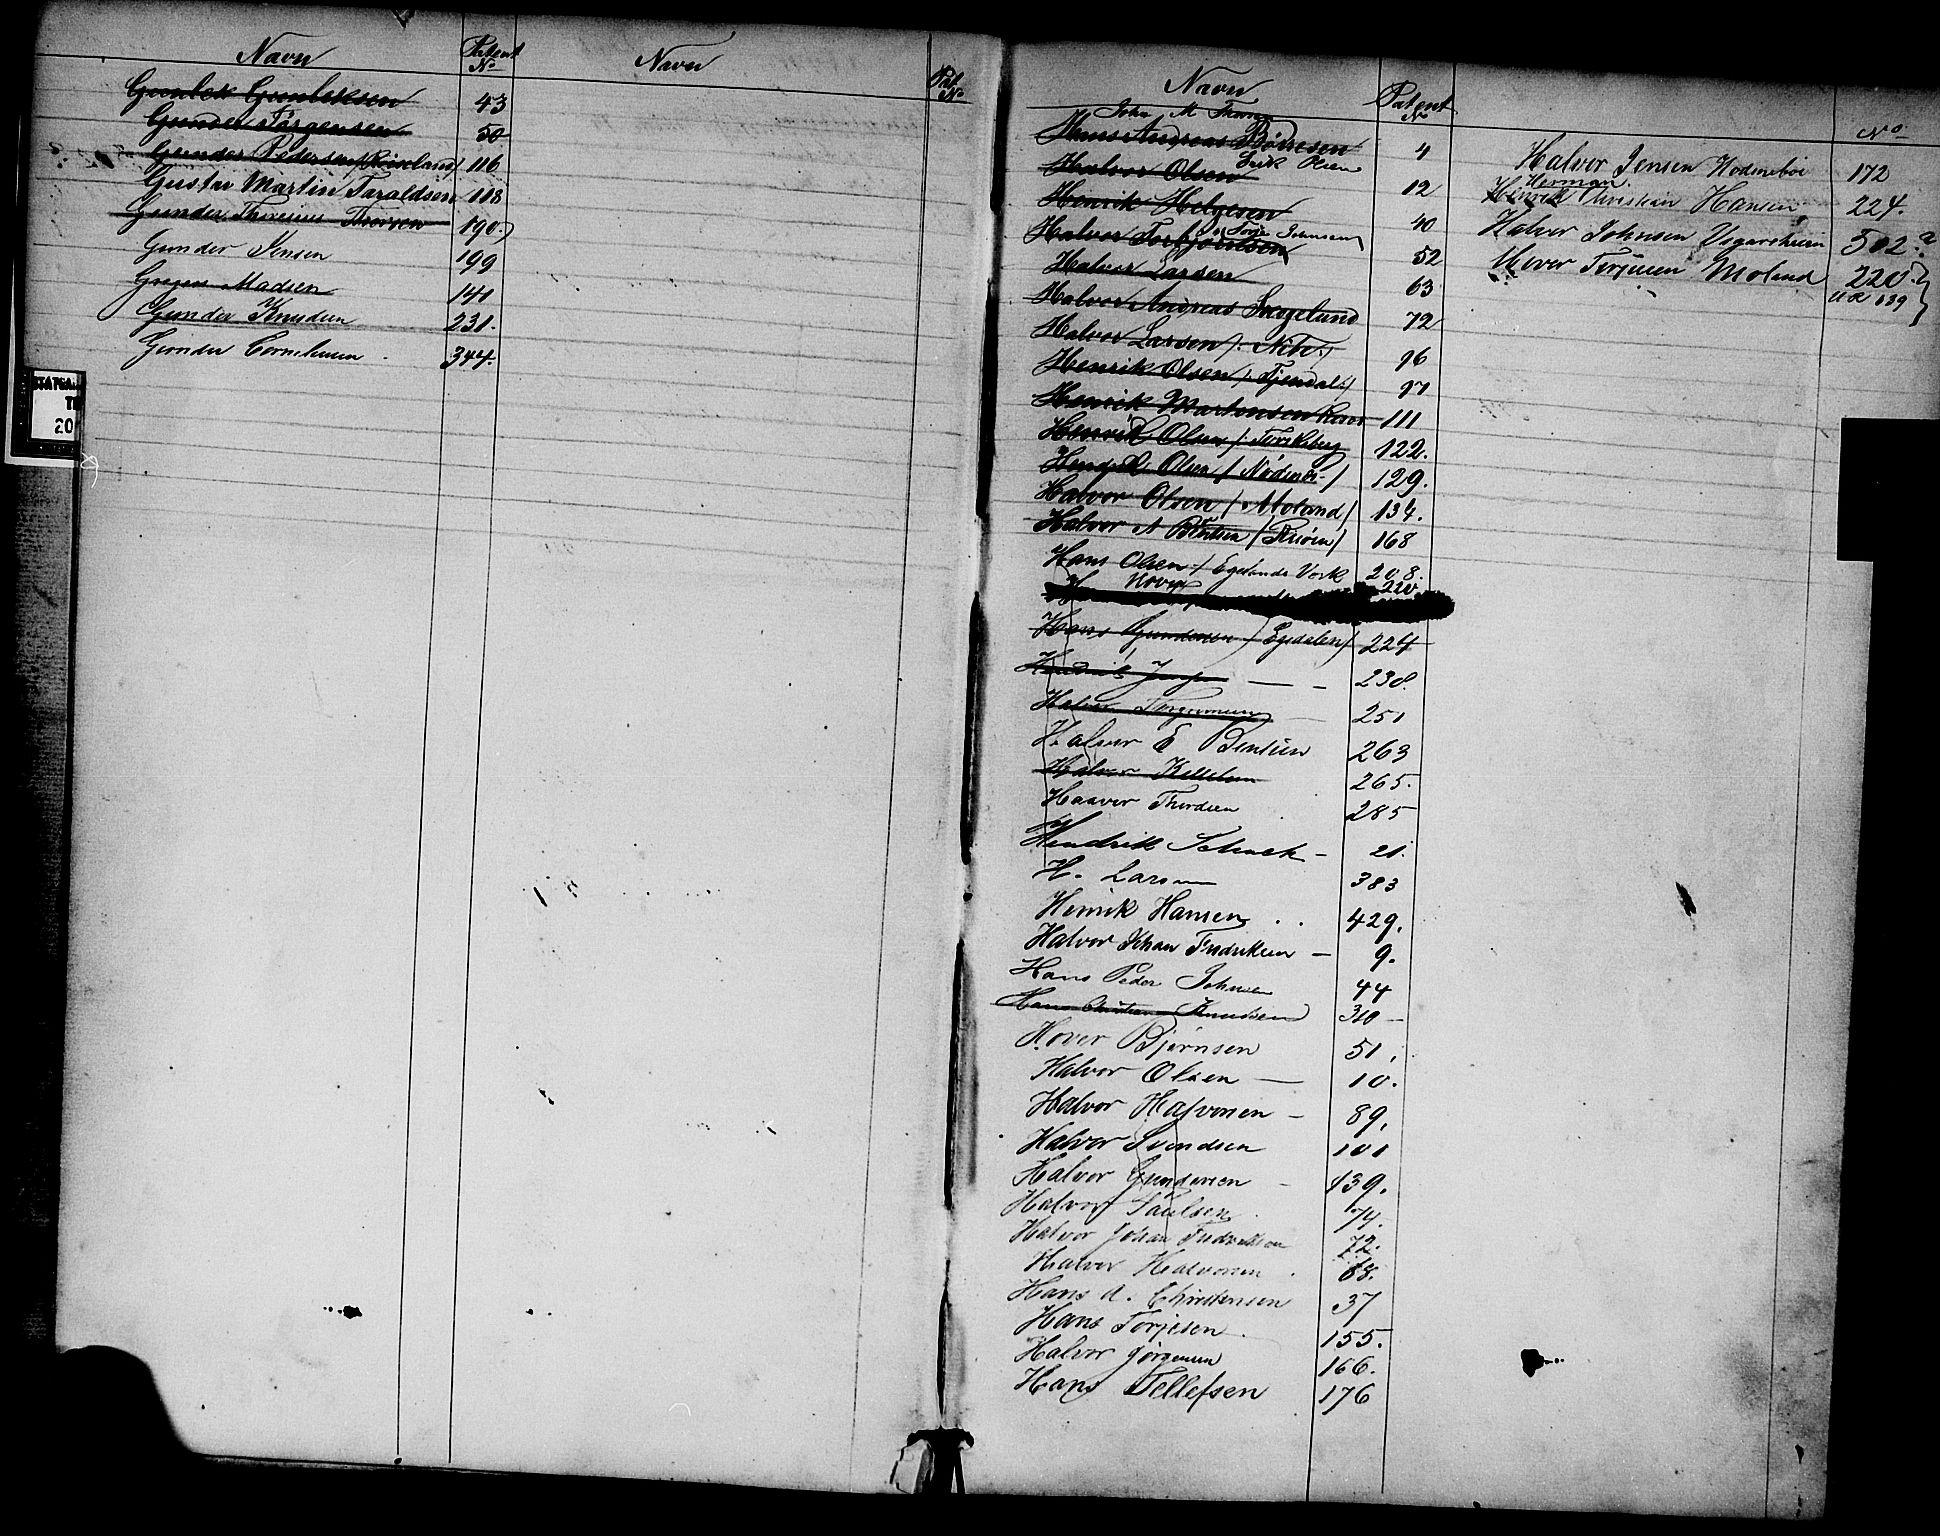 Navn Patent No Navn Pat. No
Gunlek Gunleksen 43
Gunder Jörgensen 50
Gunder Pedersen 116
Gustav Martin Taraldsen 118
Gunder Thorsen 190.
Gunder Jensen 199
Madsen 140
Gunder Knudsen 231.
Gunder Corneliusen 344.
STATSA
20
Navn Patent No
John M
Hans Andreas Börresen 4
Erik Olsen
Halvor Olsen 12
Henrik Helgesen 40
Johnsen
Halvor Torbjörnsen 52
Halvor Larsen 63
Halvor Andreas Skogelund 72
Halvor Larsen 96
Henrik Olsen 97
Henrik Martensen 111
Henrik Olsen 122.
Hendrik Olsen 129.
Halvor Olsen (Moland) 134.
Halvor N (Risöen) 168
Hans Olsen / Egelands Verk 208.
220
Hans Gundersen (Egdalen) 224
Hendrik 238.
Halvor 251
Halvor E Bentsen 263
Halvor Kittelsen 265.
Haaver Thordsen 285
Hendrik 21.
H. Larsen 383
Henrik Hansen 429.
Halvor Johan Fredriksen 9.
Hans Peder Johnsen 44
Hans Christian Knudsen 310
Hover Bjørnsen 51.
Halvor Olsen 10.
Halvor Halvorsen 89.
Halvor Svendsen 101
Halvor Gundersen 439.
Halvor Paulsen 74.
Halvor Johan Fredriksen 72.
Halvor Halvorsen 68.
Hans A. Christensen 37
Hans Torjesen 155.
Halvor Jørgensen 166.
Hans Tellefsen 176
No
Halvor Jensen 172
Herman
Henrik Christian Hansen 224.
Halvor Johnsen 502.
Hover Terjesen Moland 220.
139